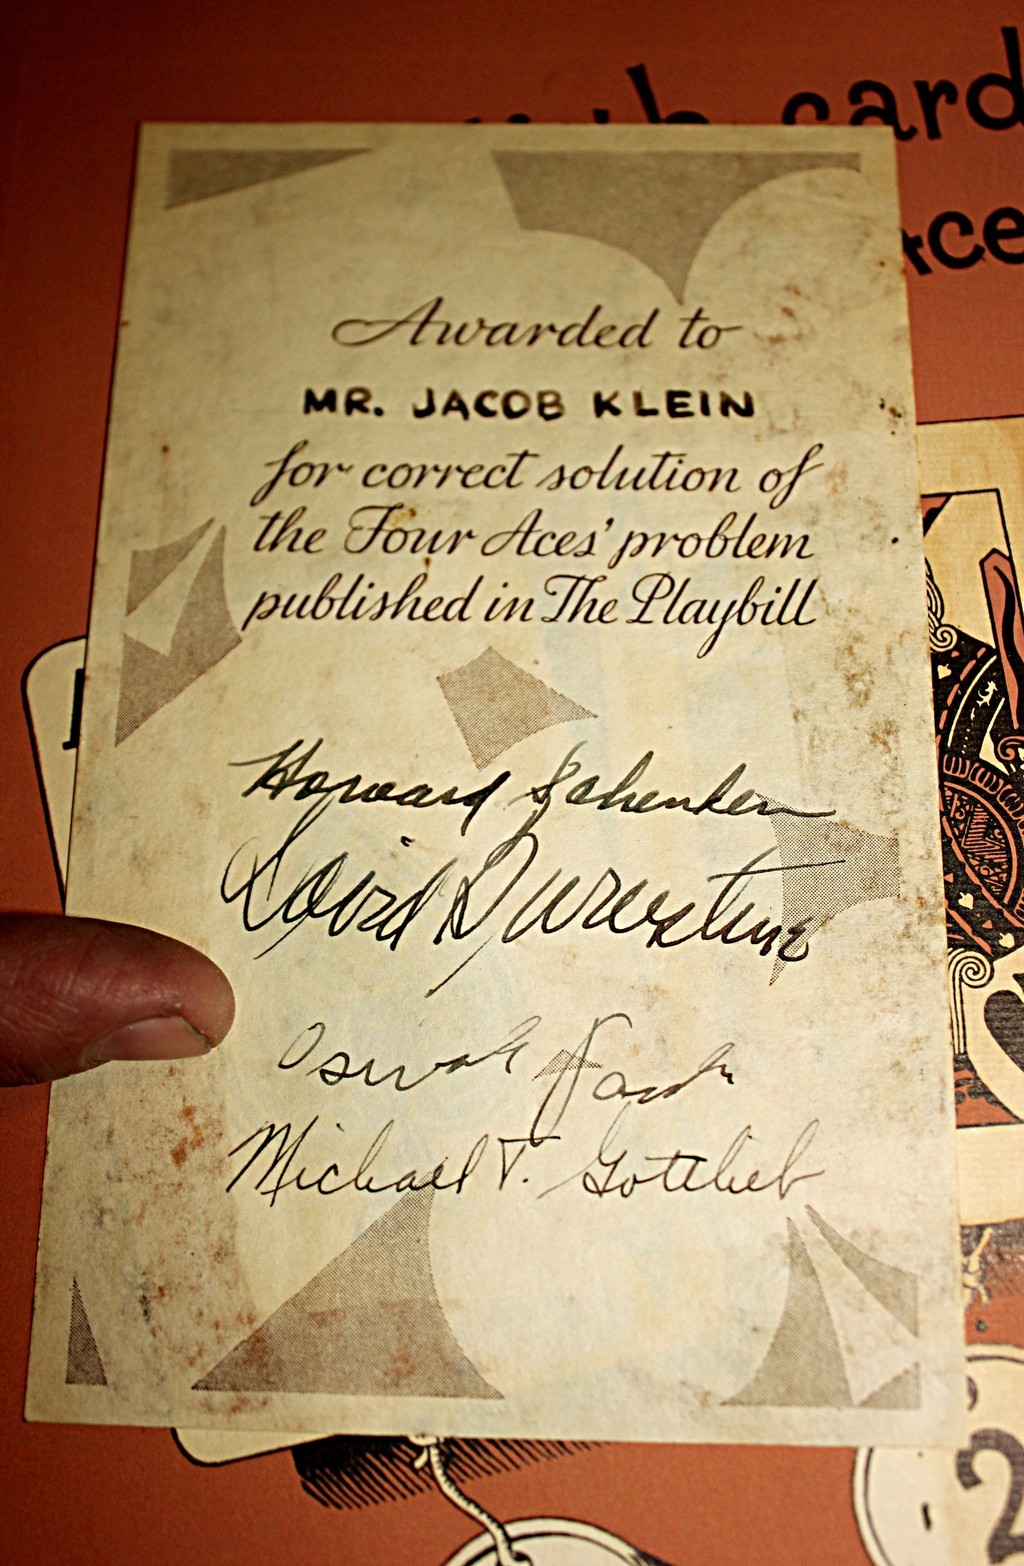 card
Awarded to
MR. JACOB KLEIN
for correct solution of
the Four Aces' problem
published in The Playbill
Howard Schenken
David Burnstine
Oswald Jacoby
Michael T. Gottlieb
2